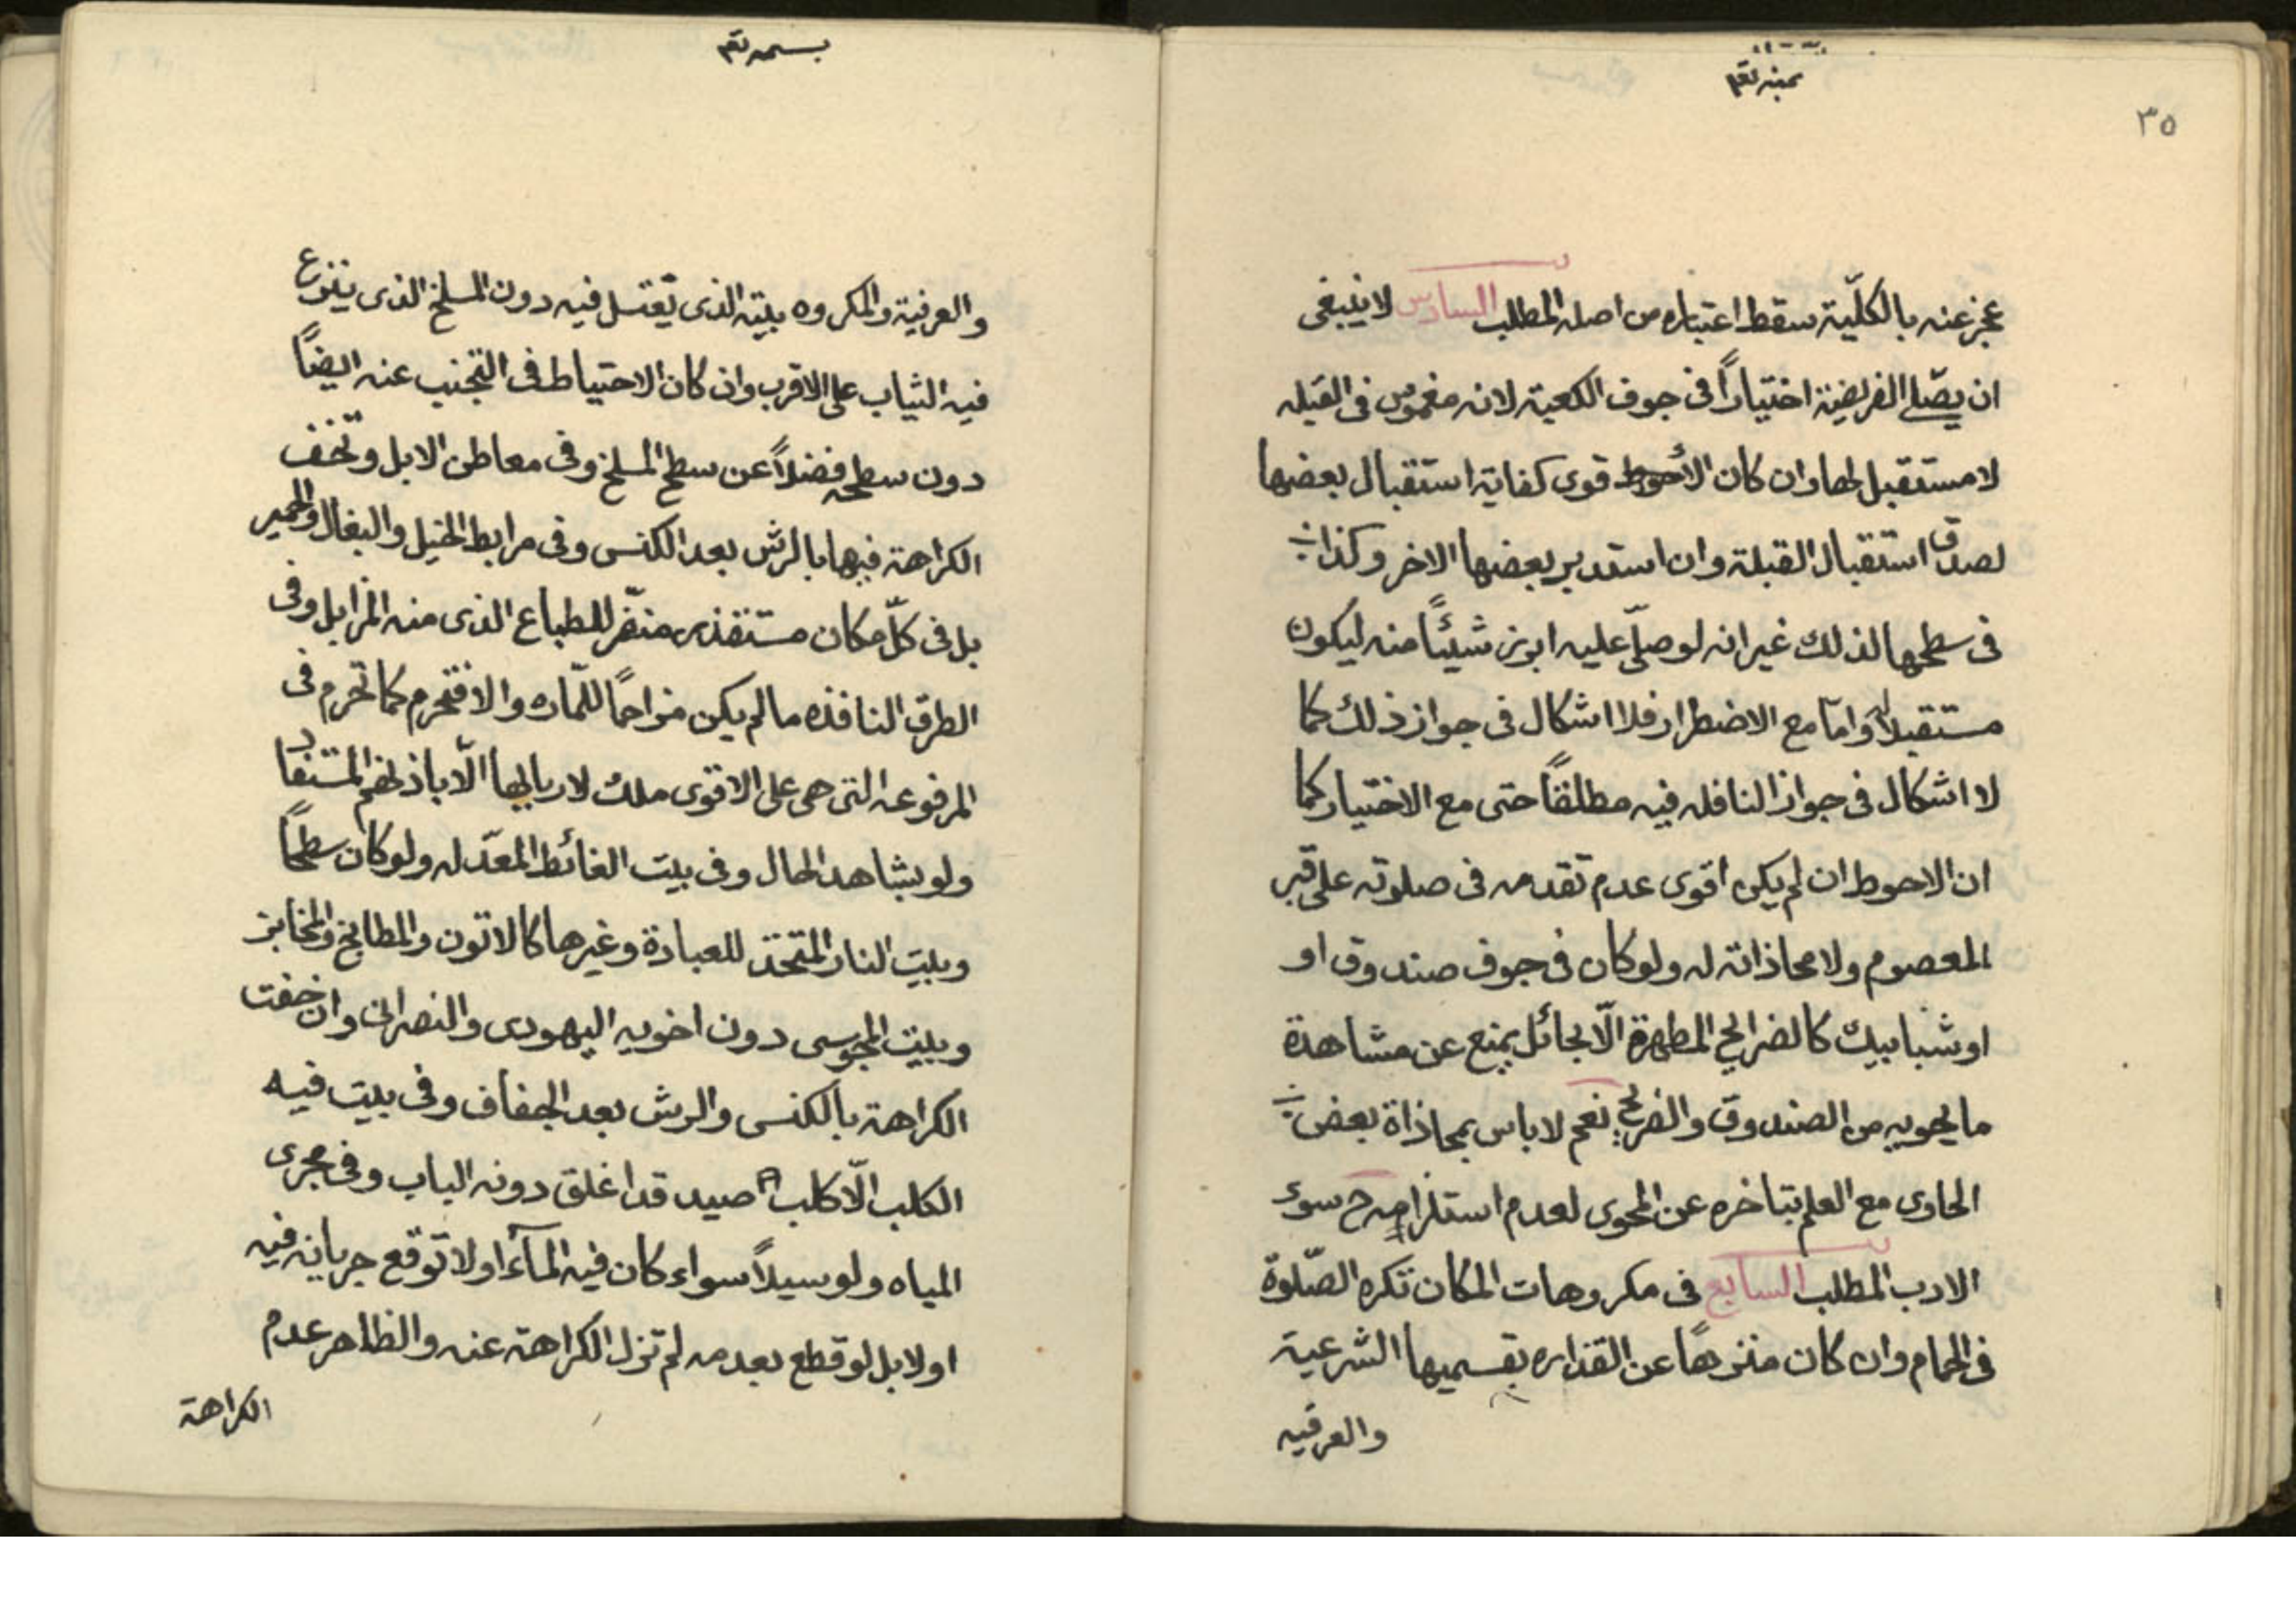 ٣٥
بمنه تعم
عجز عنه بالكلّية سقط اعتباره من اصله المطلب السادس لا ينبغى
ان يصلّے الفريضة اختياراً فى جوف الكعبة لانه مغموس فى القبله
لا مستقبل لها وان كان الأحوط قوى كفاية استقبال بعضها
لصدق استقبال القبلة وان استدبر بعضها الاخر وكذا
فى سطحها لذلك غير انه لو صلّى عليه ابرز شيئاً منه ليكون
مستقبلاً له وامّا مع الاضطرار فلا اشكال فى جواز ذلك كما
لا اشكال فى جواز النافله فيه مطلقاً حتى مع الاختيار كما
ان الاحوط ان لم يكن اقوى عدم تقدمه فى صلوته على قبر
المعصوم ولا محاذاته له ولو كان فى جوف صندوق او
او شبابيك كالضرايح المطهرة الّا بحائل يمنع عن مشاهدة
ما يحويه من الصندوق والضريح نعم لا باس بمحاذاة بعض
الحاوى مع العلم بتاخره عن المحوى لعدم استلزامه ح سوء
الادب المطلب السابع فى مكروهات المكان تكره الصّلوة
فى الحمام وان كان منزهاً عن القذاره بقسميها الشرعية
والعرفيه
بسمه تعم
والعرفية والمكروه بيته الذى يغتسل فيه دون المسلخ الذى ينزع
فيه الثياب على الاقرب وان كان الاحتياط فى التجنب عنه ايضاً
دون سطحه فضلاً عن سطح المسلخ وفى معاطن الابل وتخف
الكراهة فيها بالرش بعد الكنس وفى مرابط الخيل والبغال والحمير
بل فى كلّ مكان مستقذر منفّر للطباع الذى منه المزابل وفى
الطرق النافذه ما لم يكن مزاحماً للمّاره والا فتحرم كما تحرم فى
المرفوعه التى هى على الاقوى ملك لاربابها الّا باذنهم المستفاد
ولو بشاهد الحال وفى بيت الغائط المعدّ له ولو كان سطحاً
وبيت النار المتخذ للعبادة وغيرها كالاتون والمطابخ والمخابز
وبيت المجوسى دون اخويه اليهودى والنصرانى وان خفت
الكراهة بالكنس والرش بعد الجفاف وفى بيت فيه
الكلب الّا كلب صيد قد اغلق دونه الباب وفى مجرى
المياه ولو سيلاً سواء كان فيه المآء او لا توقع جريانه فيه
او لا بل لو قطع بعدمه لم تزل الكراهة عنه والظاهر عدم
الكراهة